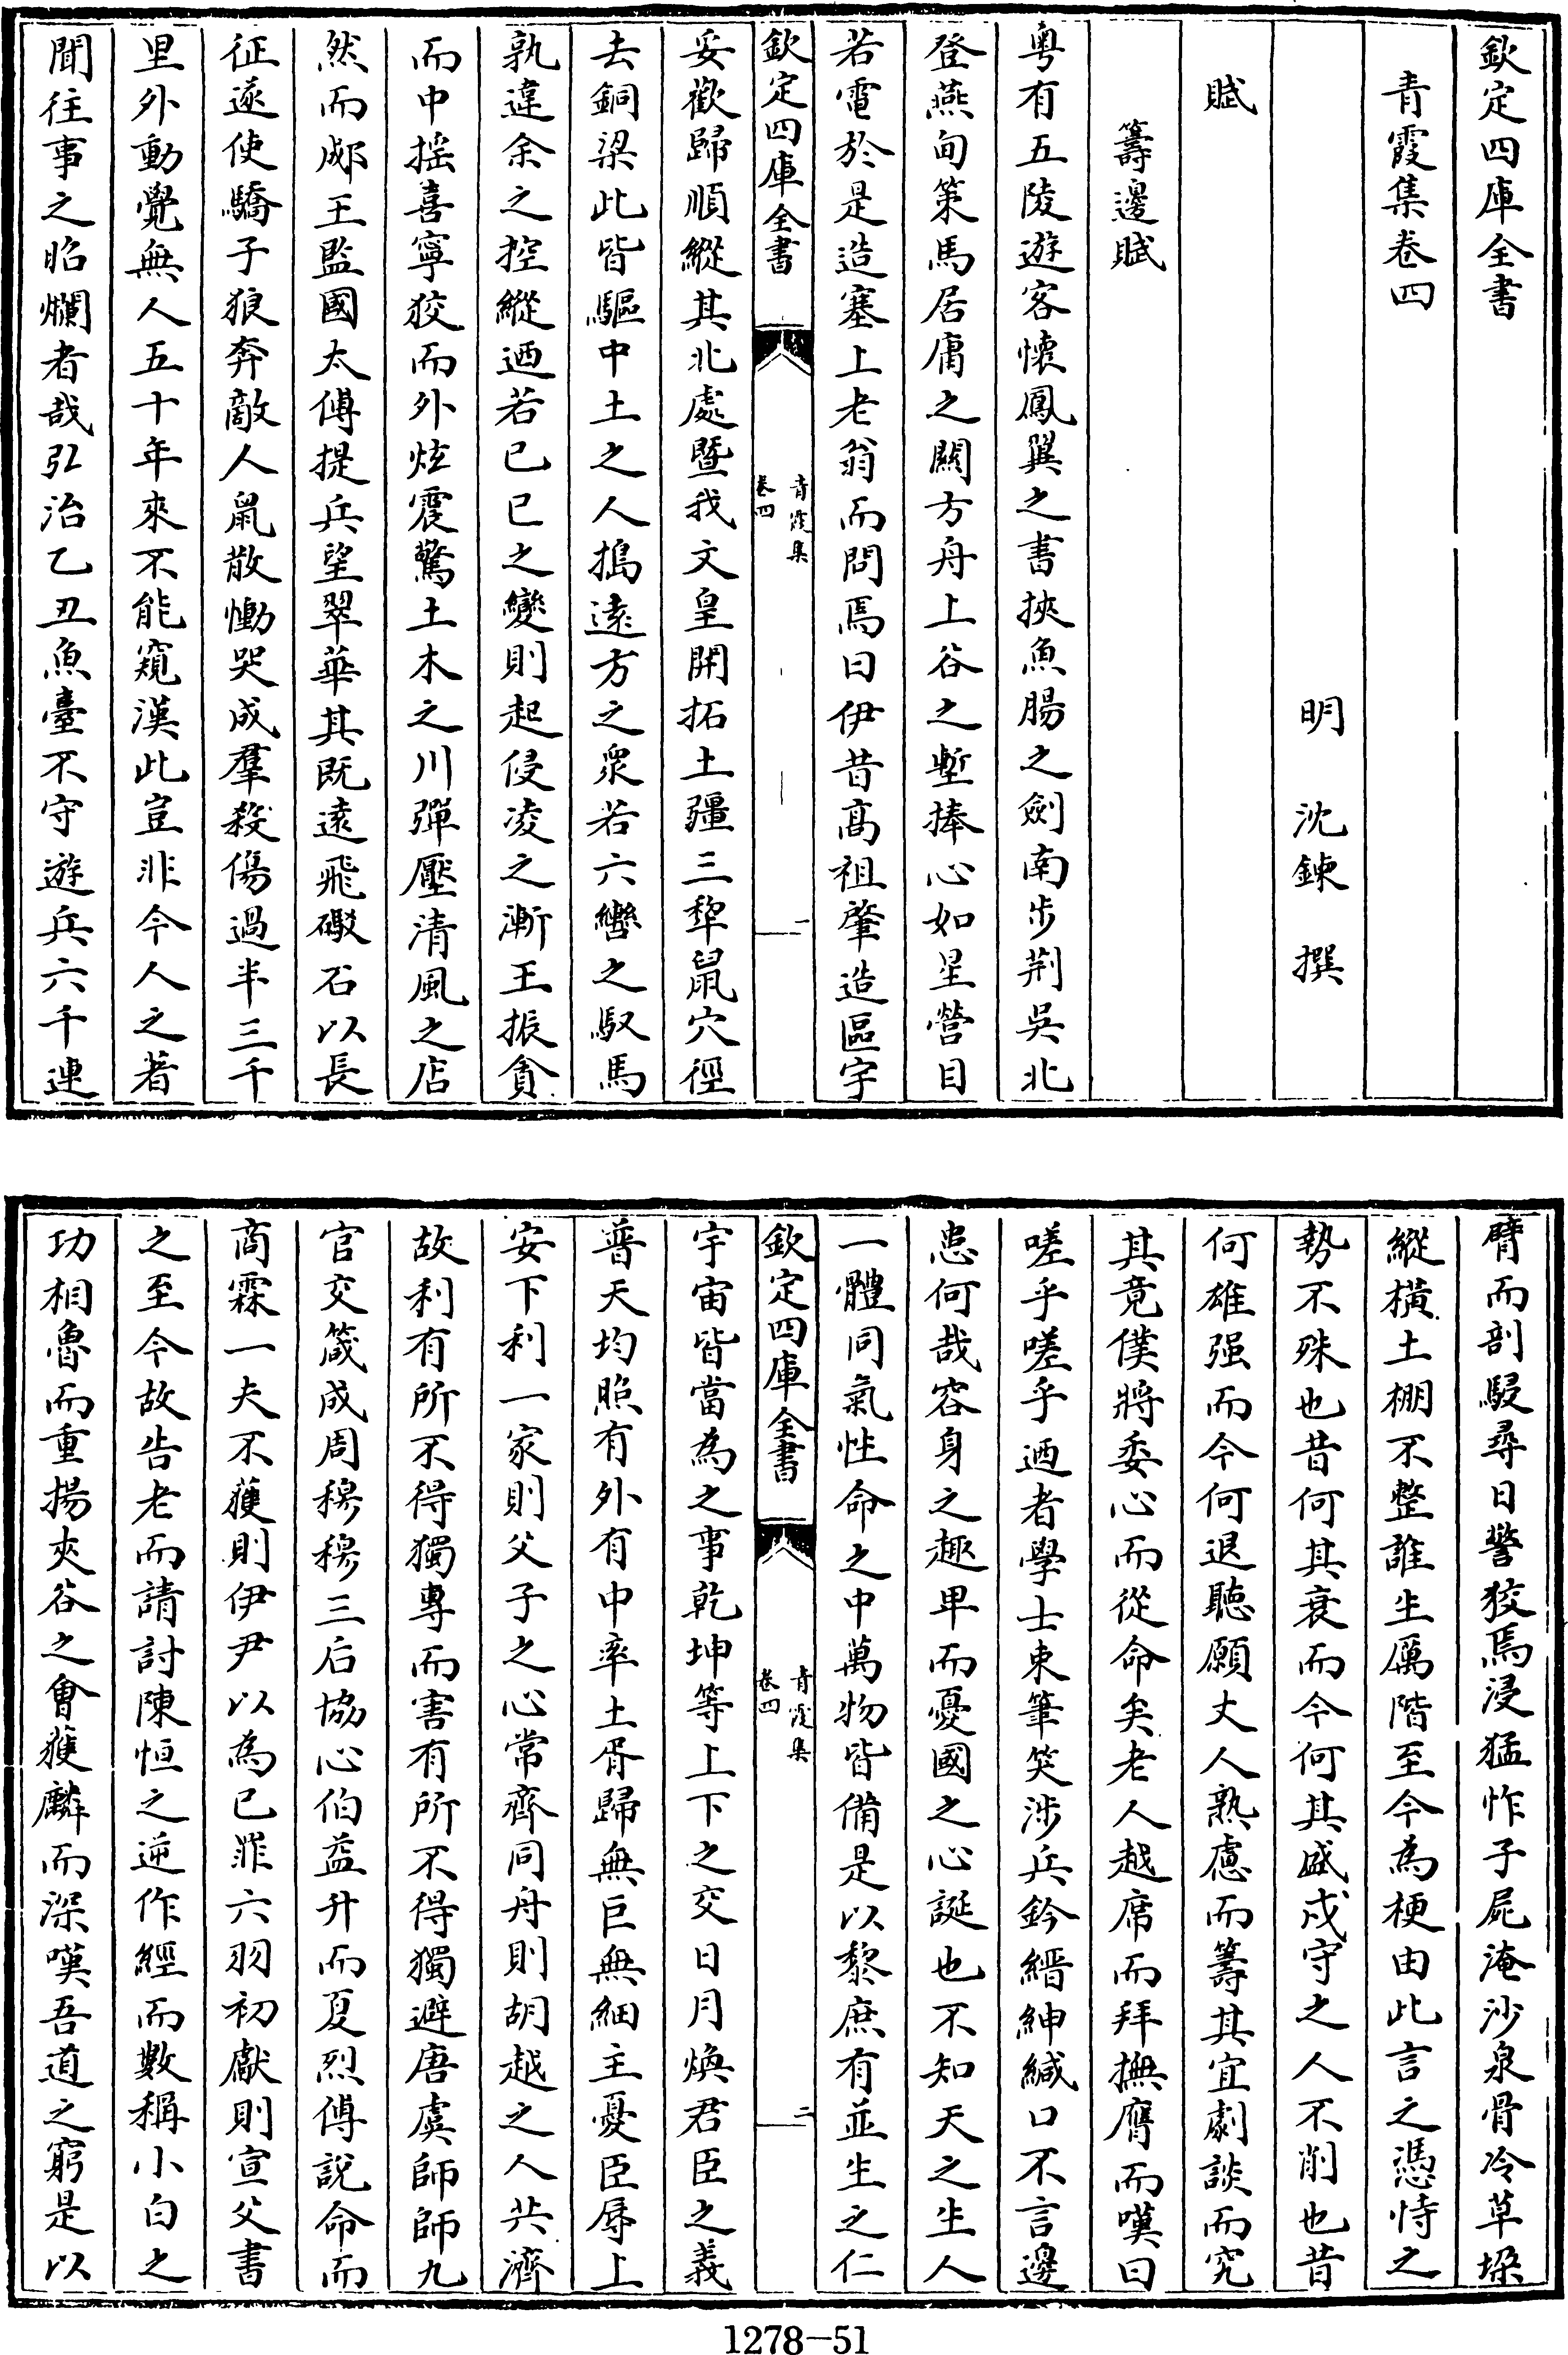 欽定四庫全書
青霞集卷四
明 沈鍊 撰
賦
籌邊賦
粤有五陵遊客懷鳳翼之書挾魚腸之劍南步荆吳北
登燕甸策馬居庸之闗方舟上谷之塹捧心如星營目
若電於是造塞上老翁而問焉曰伊昔髙祖肇造區宇
欽定四庫全書
青霞集
卷四
一
妥歡歸順縱其北處暨我文皇開拓土疆三犂鼠穴徑
去銅梁此皆驅中土之人搗遠方之衆若六轡之馭馬
孰違余之控縱迺若己巳之變則起侵凌之漸王振貪
而中摇喜寧狡而外炫震驚土木之川彈壓清風之店
然而郕王監國太傅提兵望翠華其既遠飛礮石以長
征遂使驕子狼奔敵人鼠散慟哭成羣殺傷過半三千
里外動覺無人五十年來不能窺漢此豈非今人之著
聞往事之昭爛者哉弘治乙丑魚臺不守遊兵六千連
臂而剖駸尋日警狡焉浸猛怍子屍淹沙泉骨冷草垜
縱橫土棚不整誰生厲階至今為梗由此言之憑恃之
勢不殊也昔何其衰而今何其盛戍守之人不削也昔
何雄强而今何退聽願丈人熟慮而籌其宜劇談而究
其竟僕將委心而從命矣老人越席而拜撫膺而嘆曰
嗟乎嗟乎迺者學士束筆笑涉兵鈐縉紳緘口不言邊
患何哉容身之趣卑而憂國之心誕也不知天之生人
一體同氣性命之中萬物皆備是以黎庶有並生之仁
欽定四庫全書
青霞集
卷四
二
宇宙皆當為之事乾坤等上下之交日月煥君臣之義
普天均照有外有中率土胥歸無巨無細主憂臣辱上
安下利一家則父子之心常齊同舟則胡越之人共濟
故利有所不得獨專而害有所不得獨避唐虞師師九
官交箴成周穆穆三后協心伯益升而夏烈傅說命而
商霖一夫不獲則伊尹以為已罪六羽初獻則宣父書
之至今故告老而請討陳恒之逆作經而數稱小白之
功相魯而重揚夾谷之會獲麟而深嘆吾道之窮是以
1278—51